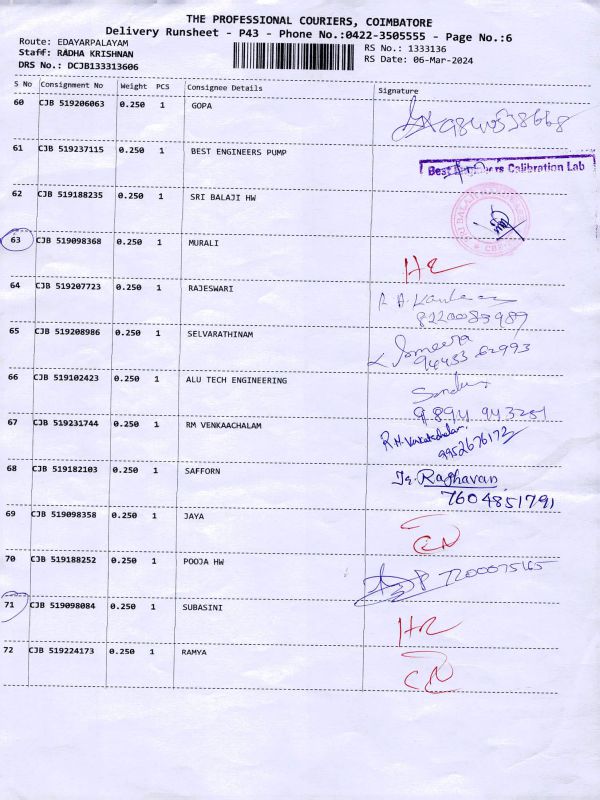 THE PROFESSIONAL COURIERS, COIMBATORE
Delivery Runsheet - P43 - Phone No.:0422-3505555 - Page No.:6
Route: EDAYARPALAYAM
Staff: RADHA KRISHNAN
DRS No.: DCJB133313606
RS No.: 1333136
RS Date: 06-Mar-2024
S No Consignment No Weight PCS Consignee Details Signature
60 CJB 519206063 0.250 1 GOPA
61 CJB 519237115 0.250 1 BEST ENGINEERS PUMP
Best Calibration Lab
62 CJB 519188235 0.250 1 SRI BALAJI HW
63 CJB 519098368 0.250 1 MURALI
64 CJB 519207723 0.250 1 RAJESWARI
65 CJB 519208986 0.250 1 SELVARATHINAM
94433 62993
66 CJB 519102423 0.250 1 ALU TECH ENGINEERING
67 CJB 519231744 0.250 1 RM VENKAACHALAM
9952676172
68 CJB 519182103 0.250 1 SAFFORN
Raghavan
7604851791
69 CJB 519098358 0.250 1 JAYA
70 CJB 519188252 0.250 1 POOJA HW 7200075165
71 CJB 519098084 0.250 1 SUBASINI
72 CJB 519224173 0.250 1 RAMYA